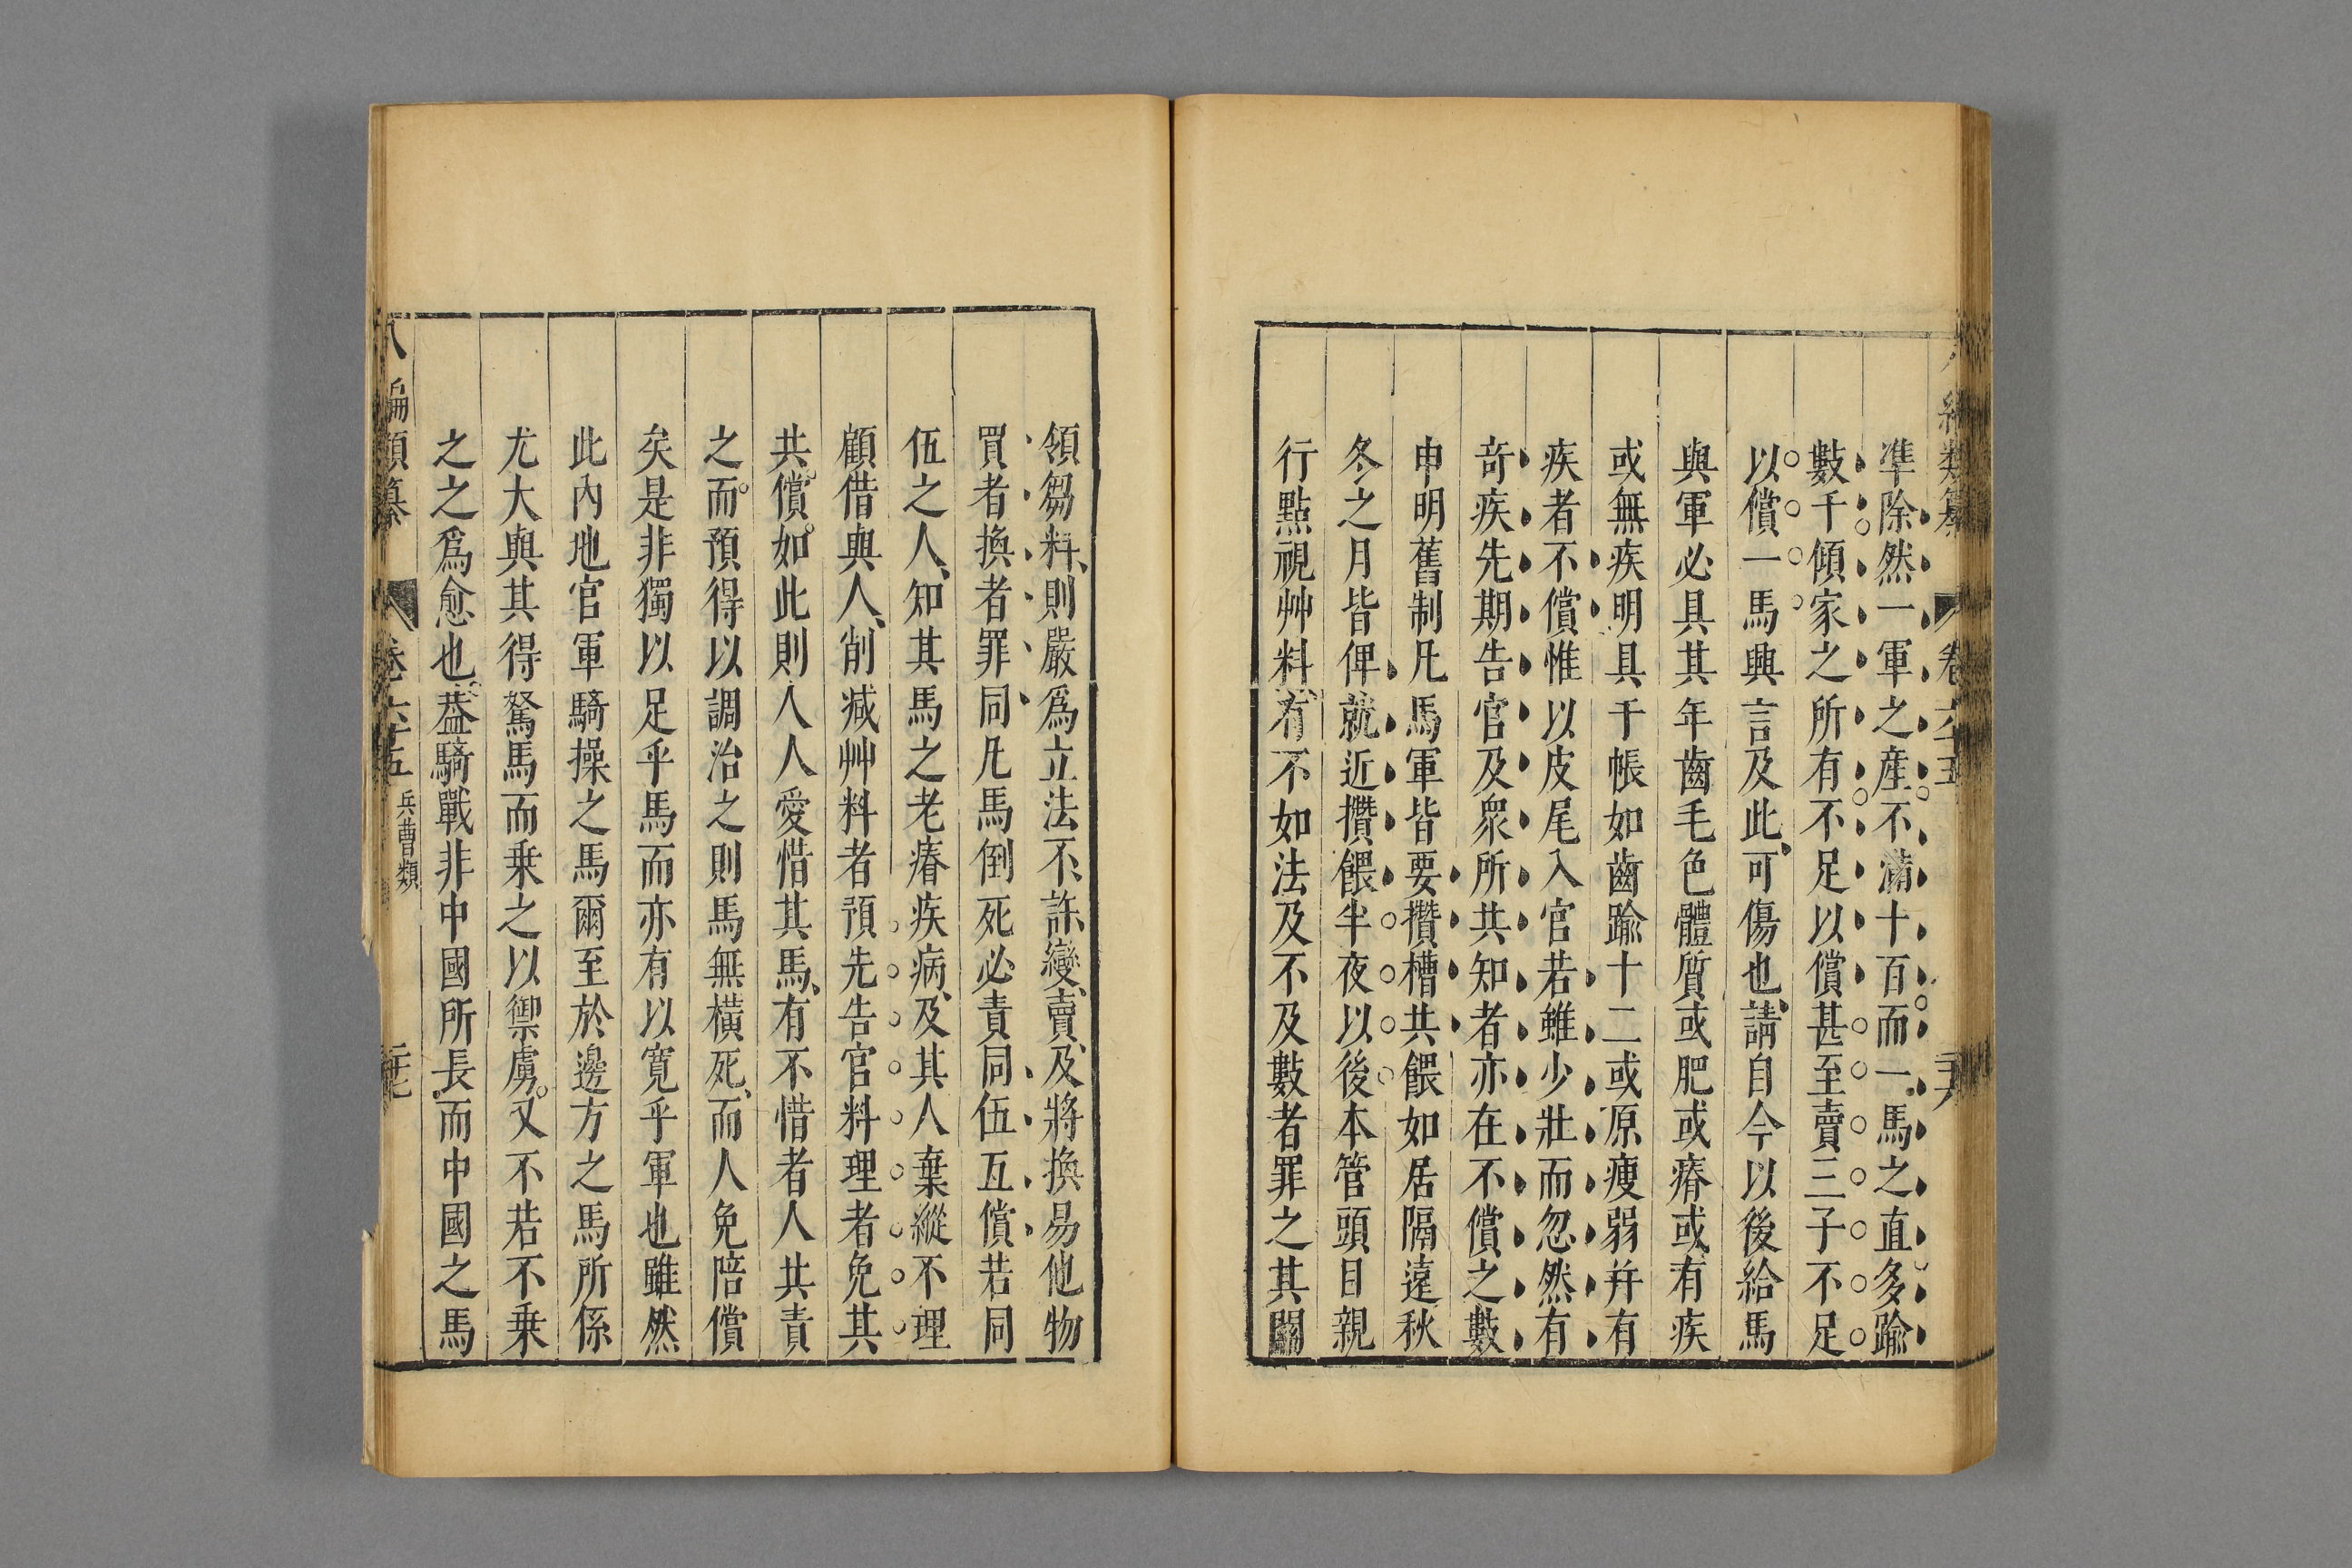 準除然一軍之産不滿十百而一馬之直多踰
數千傾家之所有不足以償甚至賣三子不足
以償一馬興言及此可傷也請自今以後給馬
與軍必具其年齒毛色體質或肥或瘠或有疾
或無疾明具于帳如齒踰十二或原瘦弱并有
疾者不償惟以皮尾入官若雖少壯而忽然有
奇疾先期告官及衆所共知者亦在不償之數
申明舊制凡馬軍皆要攢槽共餵如居隔遠秋
冬之月皆俾就近攢餵半夜以後本管頭目親
行點視艸料有不如法及不及數者罪之其關
領芻料則嚴爲立法不許變賣及將換易他物
買者換者罪同凡馬倒死必責同伍互償若同
伍之人知其馬之老瘠疾病及其人棄縱不理
顧借與人削減艸料者預先告官料理者免其
共償如此則人人愛惜其馬有不惜者人共責
之而預得以調治之則馬無橫死而人免陪償
矣是非獨以足乎馬而亦有以寬乎軍也雖然
此內地官軍騎操之馬爾至於邊方之馬所係
尤大與其得駑馬而乗之以禦虜又不若不乗
之之爲愈也葢騎戰非中國所長而中國之馬
八編類纂 卷六十五 兵曹類